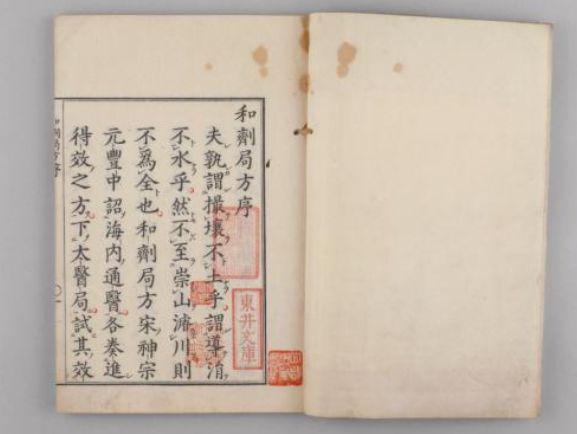 和劑局方序
夫孰謂撮壤不土乎謂導涓
不水乎然不至崇山濬川則
不爲全也和劑局方宋神宗
元豐中詔海内通醫各奏進
得效之方下太醫局試其效
東井文庫